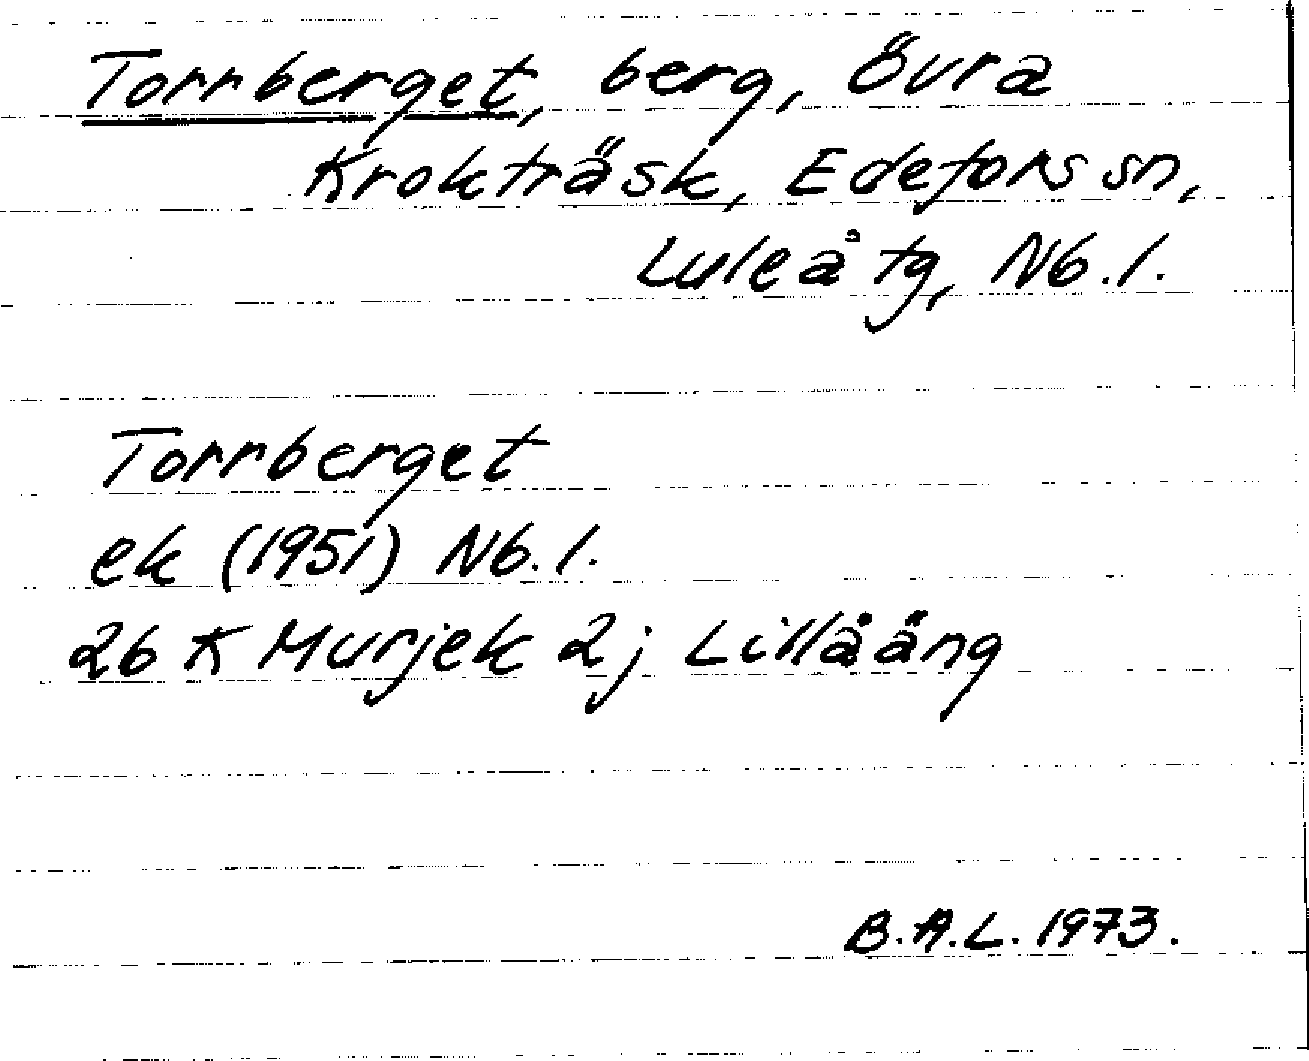 Torrberget, berg, Övra
Krokträsk, Edefors sn,
Luleå tg, Nb.l.
Torrberget
ek (1951) Nb.l.
26 K Murjek 2j Lillåäng
B.A.L. 1973.